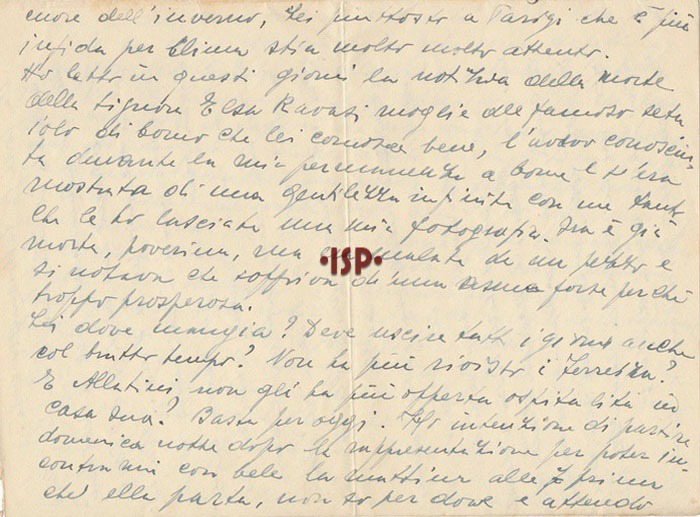 cuore dell'inverno, Lei piuttosto a Parigi che è più
infida per clima stia molto molto attento.
Ho letto in questi giorni la notizia della morte
della Signora Elsa Ravasi moglie del famoso seta
iolo di Como che lei conosce bene, l'avevo conosciu-
ta durante la mia permanenza a Como e s'era
mostrata di una gentilezza infinita con me tanto
che le ho lasciata una mia fotografia. Era già
morta, poverina, ma era malata da un pezzo e
•ISP•
si notava che soffriva d'una asma forte perchè
troppo prosperosa.
Lei dove mangia? Deve uscire tutti i giorni anche
col brutto tempo? Non ha più rivisto i Terrezza?
E Allatini non gli ha più offerta ospitalità in
casa sua? Basta per oggi. Ho intenzione di partire
domenica notte dopo la rappresentazione per poter in-
contrarmi con bebe la mattina alle 7 prima
che ella parta, non so per dove e attendo